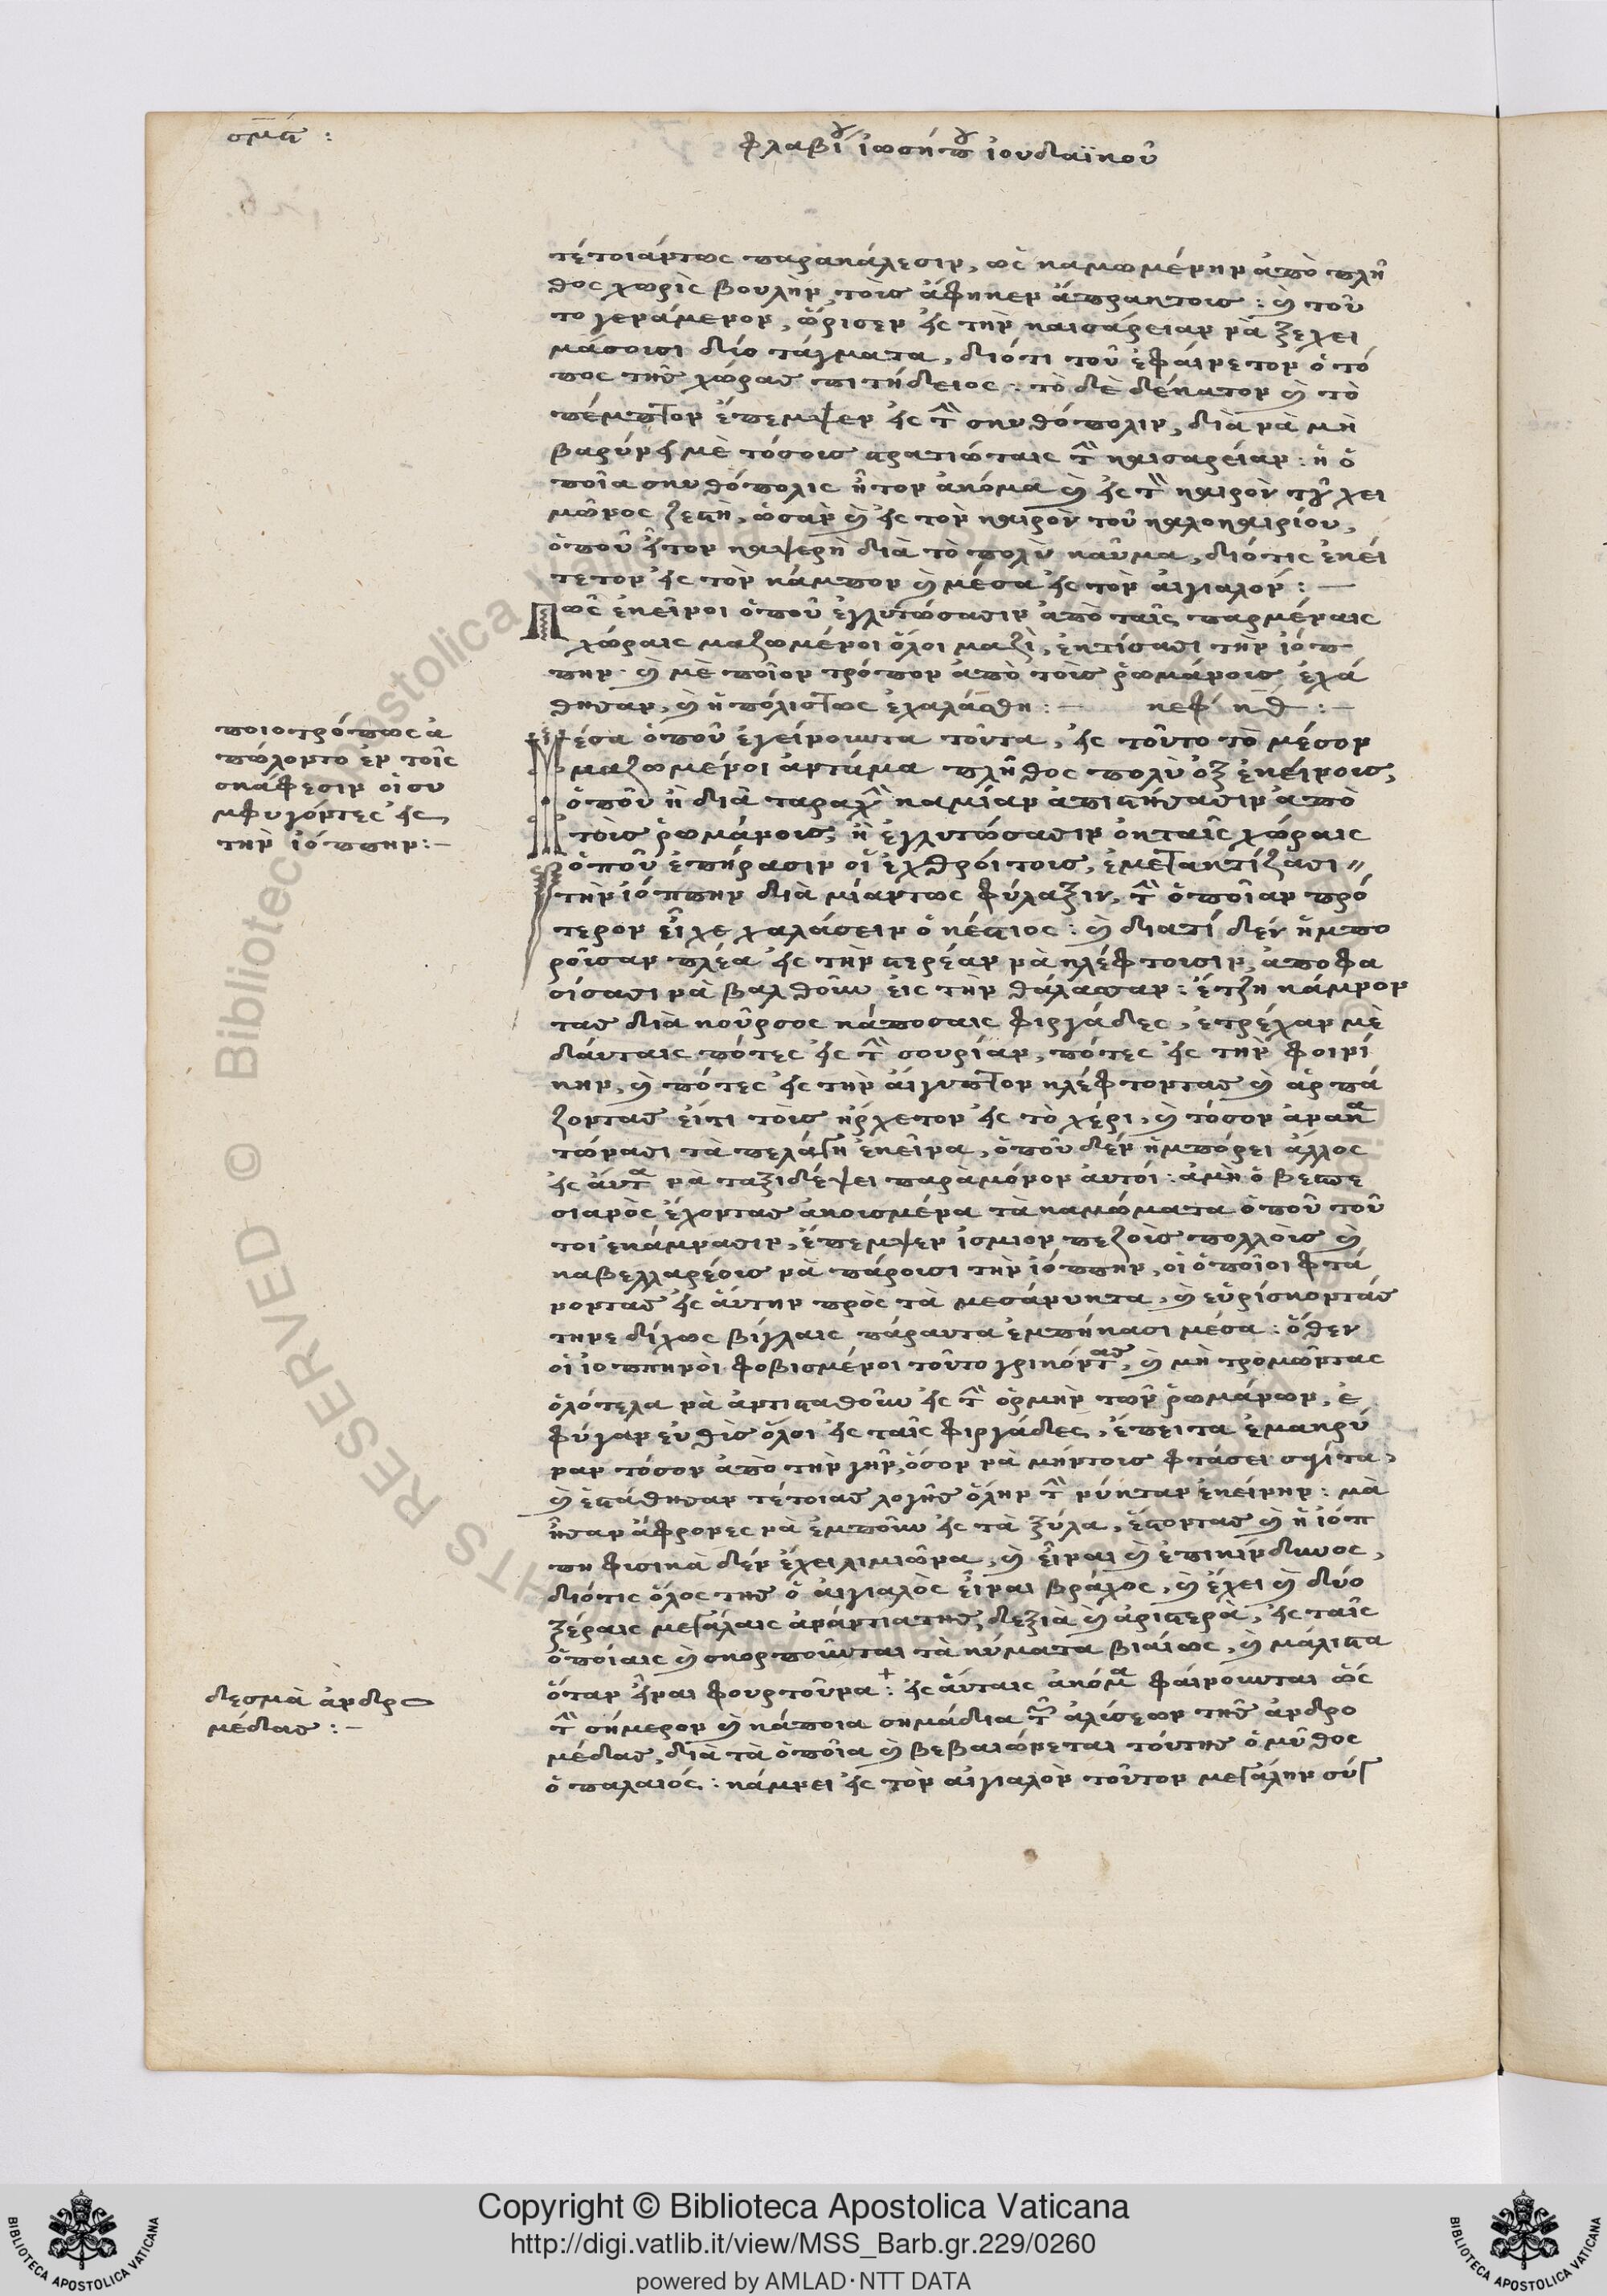 φλαβίου ἰωσήπου ἰουδαϊκοῦ
τέτοιάντως παρακάλεσιν, ὡς καμωμένην ἀπὸ πλῆ
θος χωρὶς βουλὴν τοὺς ἄφηκεν ἄπρακτους : καὶ τοῦ
το γενάμενον, ὥρισεν εἰς τὴν καισάρειαν νὰ ξεχει
μάσουσι δύο τάγματα, διότι τοῦ ἐφαίνετον ὁ τό
πος τῆς χώρας πιτήδειος : τὸ δὲ δέκατον καὶ τὸ
πέμπτον ἔπεμψεν εἰς τὴν σκυθόπολιν, διὰ νὰ μὴ
βαρύνῃ μὲ τόσους στρατιώταις τὴν καισαρείαν : ἡ ὁ
ποῖα σκυθόπολις ἦτον ἀκόμα καὶ εἰς τὸν καιρὸν τοῦ χει
μῶνος ζεστὴ, ὡσὰν καὶ εἰς τὸν καιρὸν τοῦ καλοκαιρίου,
ὁποῦ ἦτον καψερὴ διὰ τὸ πολὺ καῦμα, διότις ἐκεί
τετον εἰς τὸν κάμπον καὶ μέσα εἰς τὸν αἰγιαλόν : —
Πῶς ἐκεῖνοι ὁποῦ ἐγλυτώσασιν ἀπὸ ταῖς παρμέναις
χώραις μαζωμένοι ὅλοι μαζὶ, ἐκτίσασι τὴν ἰόπ
πην. καὶ μὲ ποῖον τρόπον ἀπὸ τοὺς ῥωμάνους ἐχά
θησαν, καὶ ἡ πόλις τως ἐχαλάσθη : — κεφ κθ : —
ποιοτρόπως ἀ
πώλοντο ἐν τοῖς
σκάφεσιν οἱ συ
μφυγόντες εἰς
τὴν ἰόππην : —
Μέσα ὁποῦ ἐγείνουντα τοῦτα, εἰς τοῦτο τὸ μέσον
μαζωμένοι ἀντάμα πλῆθος πολὺ ὀξ ἐκείνους,
ὁποῦ ἢ διὰ ταραχὴν καμίαν ἀπιστήσασιν ἀπὸ
τοὺς ῥωμάνους, ἢ ἐγλυτώσασιν ὀκ ταῖς χώραις
ὁποῦ ἐπήρασιν οἱ ἐχθροί τους, ἐμετακτίζασι
τὴν ἰόππην διὰ μίαντως φύλαξιν, τὴν ὁποῖαν πρό
τερον εἶχε χαλάσειν ὁ κέστιος : καὶ διατί δὲν ἠμπο
ροῦσαν πλέα εἰς τὴν στερέαν νὰ κλέφτουσιν, ἀποφα
σίσασι νὰ βαλθοῦν εἰς τὴν θάλασσαν : ἔτζη κάμνον
τας διὰ κοῦρσος κάποσαις φιργάδες, ἐτρέχαν μὲ
δαύταις πότες εἰς τὴν συρίαν, πότες εἰς τὴν φοινί
κην, καὶ πότες εἰς τὴν αἴγυπτον κλέφτοντας καὶ ἁρπά
ζοντας εἴτι τοὺς ἤρχετον εἰς τὸ χέρι, καὶ τόσον ἀνακα
τώνασι τὰ πελάγη ἐκεῖνα, ὁποῦ δὲν ἠμπόρει ἄλλος
εἰς αὐτὰ νὰ ταξιδέψει παρὰ μόνον αὐτοί : ἀμὴ ὁ βεσπε
σιανὸς ἔχοντας ἀκουσμένα τὰ καμώματα ὁποῦ τοῦ
τοι ἐκάμνασιν, ἔπεμψεν ἴσμιον πεζοὺς πολλοὺς καὶ
καβελλαρέους νὰ πάρουσι τὴν ἰόππην, οἱ ὁποῖοι φτά
νοντας εἰς αὔτην πρὸς τὰ μεσάνυκτα, καὶ εὑρίσκοντάς
τηνε δίχως βίγλαις πάραυτα ἐμπήκασι μέσα : ὅθεν
οἱ ἰοππηνοὶ φοβισμένοι τοῦτο γρικόντας, καὶ μὴ τρομῶντας
ὁλότελα νὰ ἀντισταθοῦν εἰς τὴν ὁρμὴν τῶν ῥωμάνων, ἐ
φύγαν εὐθὺς ὅλοι εἰς ταῖς φιργάδες, ἔπειτα ἐμακρύ
ναν τόσον ἀπὸ τὴν γῆν, ὅσον νὰ μήν τους φτάσει σαγίτα,
καὶ ἐστάθησαν τέτοιας λογῆς ὅλην τὴν νύκταν ἐκείνην : μὰ
ἦσαν ἄφρονες νὰ ἐμποῦν εἰς τὰ ξύλα, ἔστοντας καὶ ἡ ἰόπ
πη φισικὰ δὲν ἔχει λιμιῶνα, καὶ εἶναι καὶ ἐπικίνδυνος,
διότις ὅλος της ὁ αἰγιαλὸς εἶναι βράχος, καὶ ἔχει καὶ δύο
ξέραις μεγάλαις ἀνάντια της, δεξιὰ καὶ ἀριστερὰ, εἰς ταῖς
ὁποίαις καὶ σκορποῦνται τὰ κύματα βιαίως, καὶ μάλιστα
ὅταν εἶναι φουρτοῦνα : εἰς αὔταις ἀκόμα φαίνουνται ὡς
δεσμὰ ἀνδρο
μέδας : —
τὴν σήμερον καὶ κάποια σημάδια τῶν ἁλύσεων τῆς ἀνδρο
μέδας, διὰ τὰ ὁποῖα καὶ βεβαιώνεται τούτης ὁ μῦθος
ὁ παλαιός : κάμνει εἰς τὸν αἰγιαλὸν τοῦτον μεγάλην σύγ
Copyright © Biblioteca Apostolica Vaticana
http://digi.vatlib.it/view/MSS_Barb.gr.229/0260
powered by AMLAD·NTT DATA